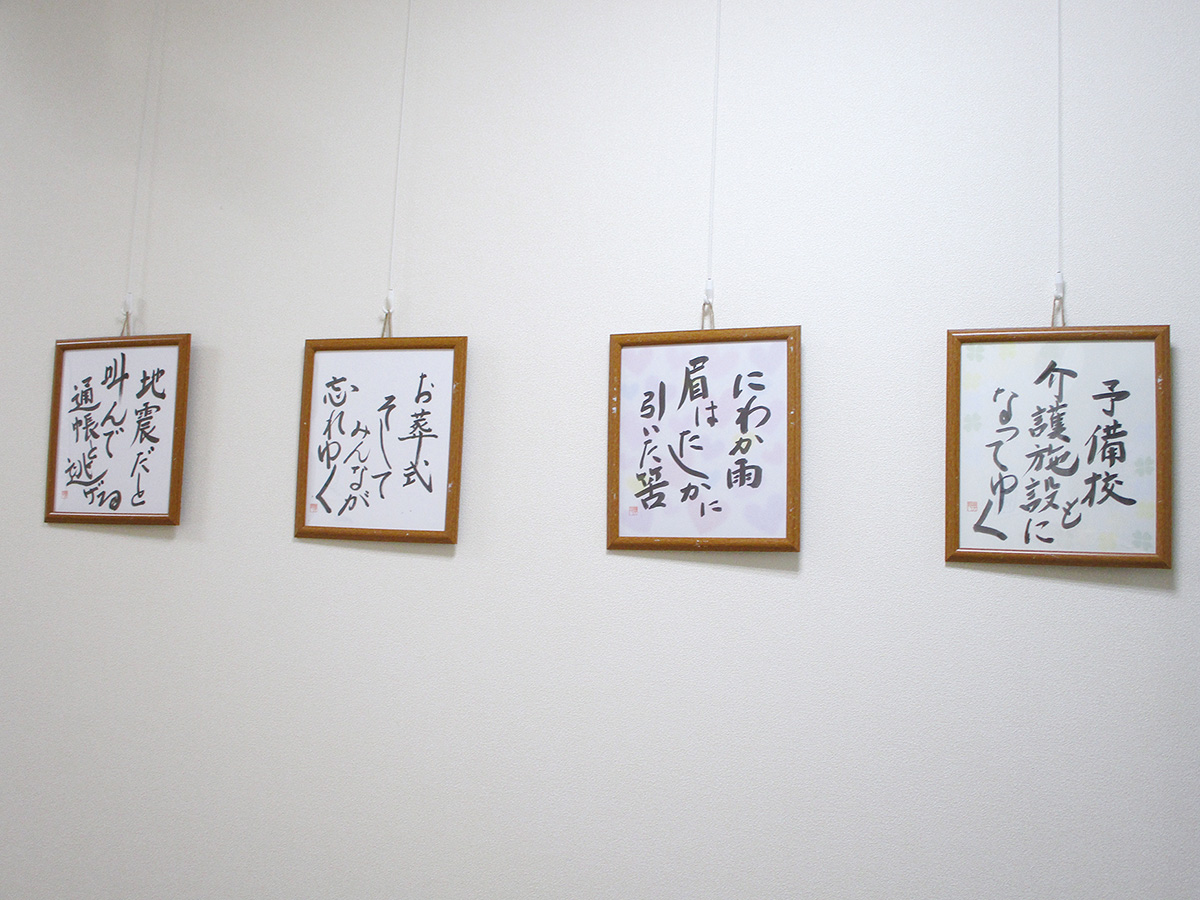 地震だと
叫んで
通帳と逃げる
お葬式
そして
みんなが
忘れゆく
にわか雨
眉はたしかに
引いた筈
予備校も
介護施設に
なってゆく